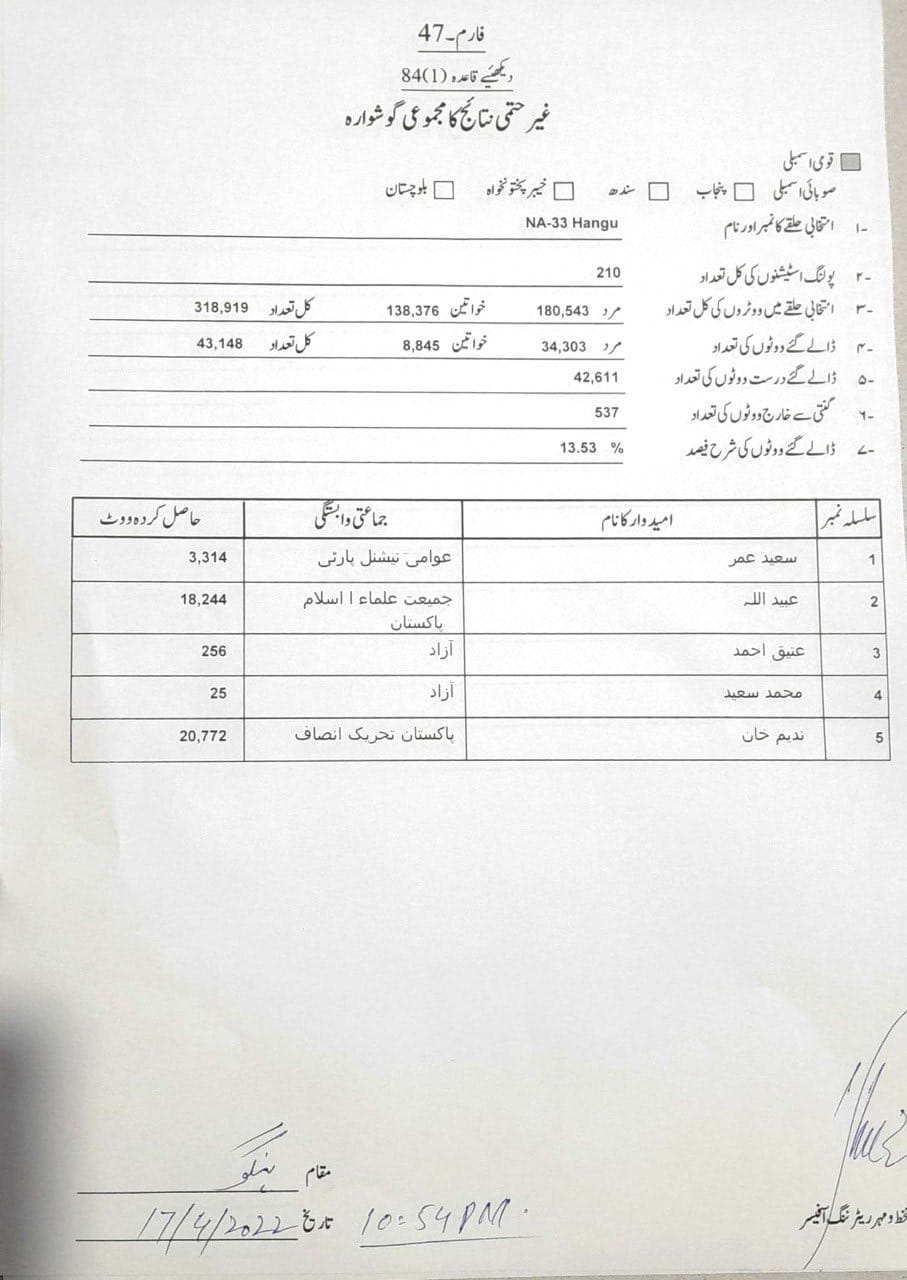 فارم۔47
دیکھئیے قاعدہ (1)84
غیر حتمی نتائج کا مجموعی گوشوارہ
قومی اسمبلی
صوبائی اسمبلی پنجاب سندھ خیبر پختونخواہ بلوچستان
۱- انتخابی حلقے کا نمبر اور نام NA-33 Hangu
۲- پولنگ اسٹیشنوں کی کل تعداد 210
۳- انتخابی حلقے میں ووٹروں کی کل تعداد مرد 180,543 خواتین 138,376 کل تعداد 318,919
۴- ڈالے گئے ووٹوں کی تعداد مرد 34,303 خواتین 8,845 کل تعداد 43,148
۵- ڈالے گئے درست ووٹوں کی تعداد 42,611
۶- گنتی سے خارج ووٹوں کی تعداد 537
۷- ڈالے گئے ووٹوں کی شرح فیصد 13.53 %
سلسلہ نمبر امیدوار کا نام جماعتی وابستگی حاصل کردہ ووٹ
1 سعید عمر عوامی نیشنل پارٹی 3,314
2 عبید اللہ جمیعت علماء ا اسلام 18,244
پاکستان
3 عتیق احمد آزاد 256
4 محمد سعید آزاد 25
5 ندیم خان پاکستان تحریک انصاف 20,772
مقام ہنگو
تاریخ 17/4/2022 10:54 PM.
خط و مہر ریٹرننگ آفیسر